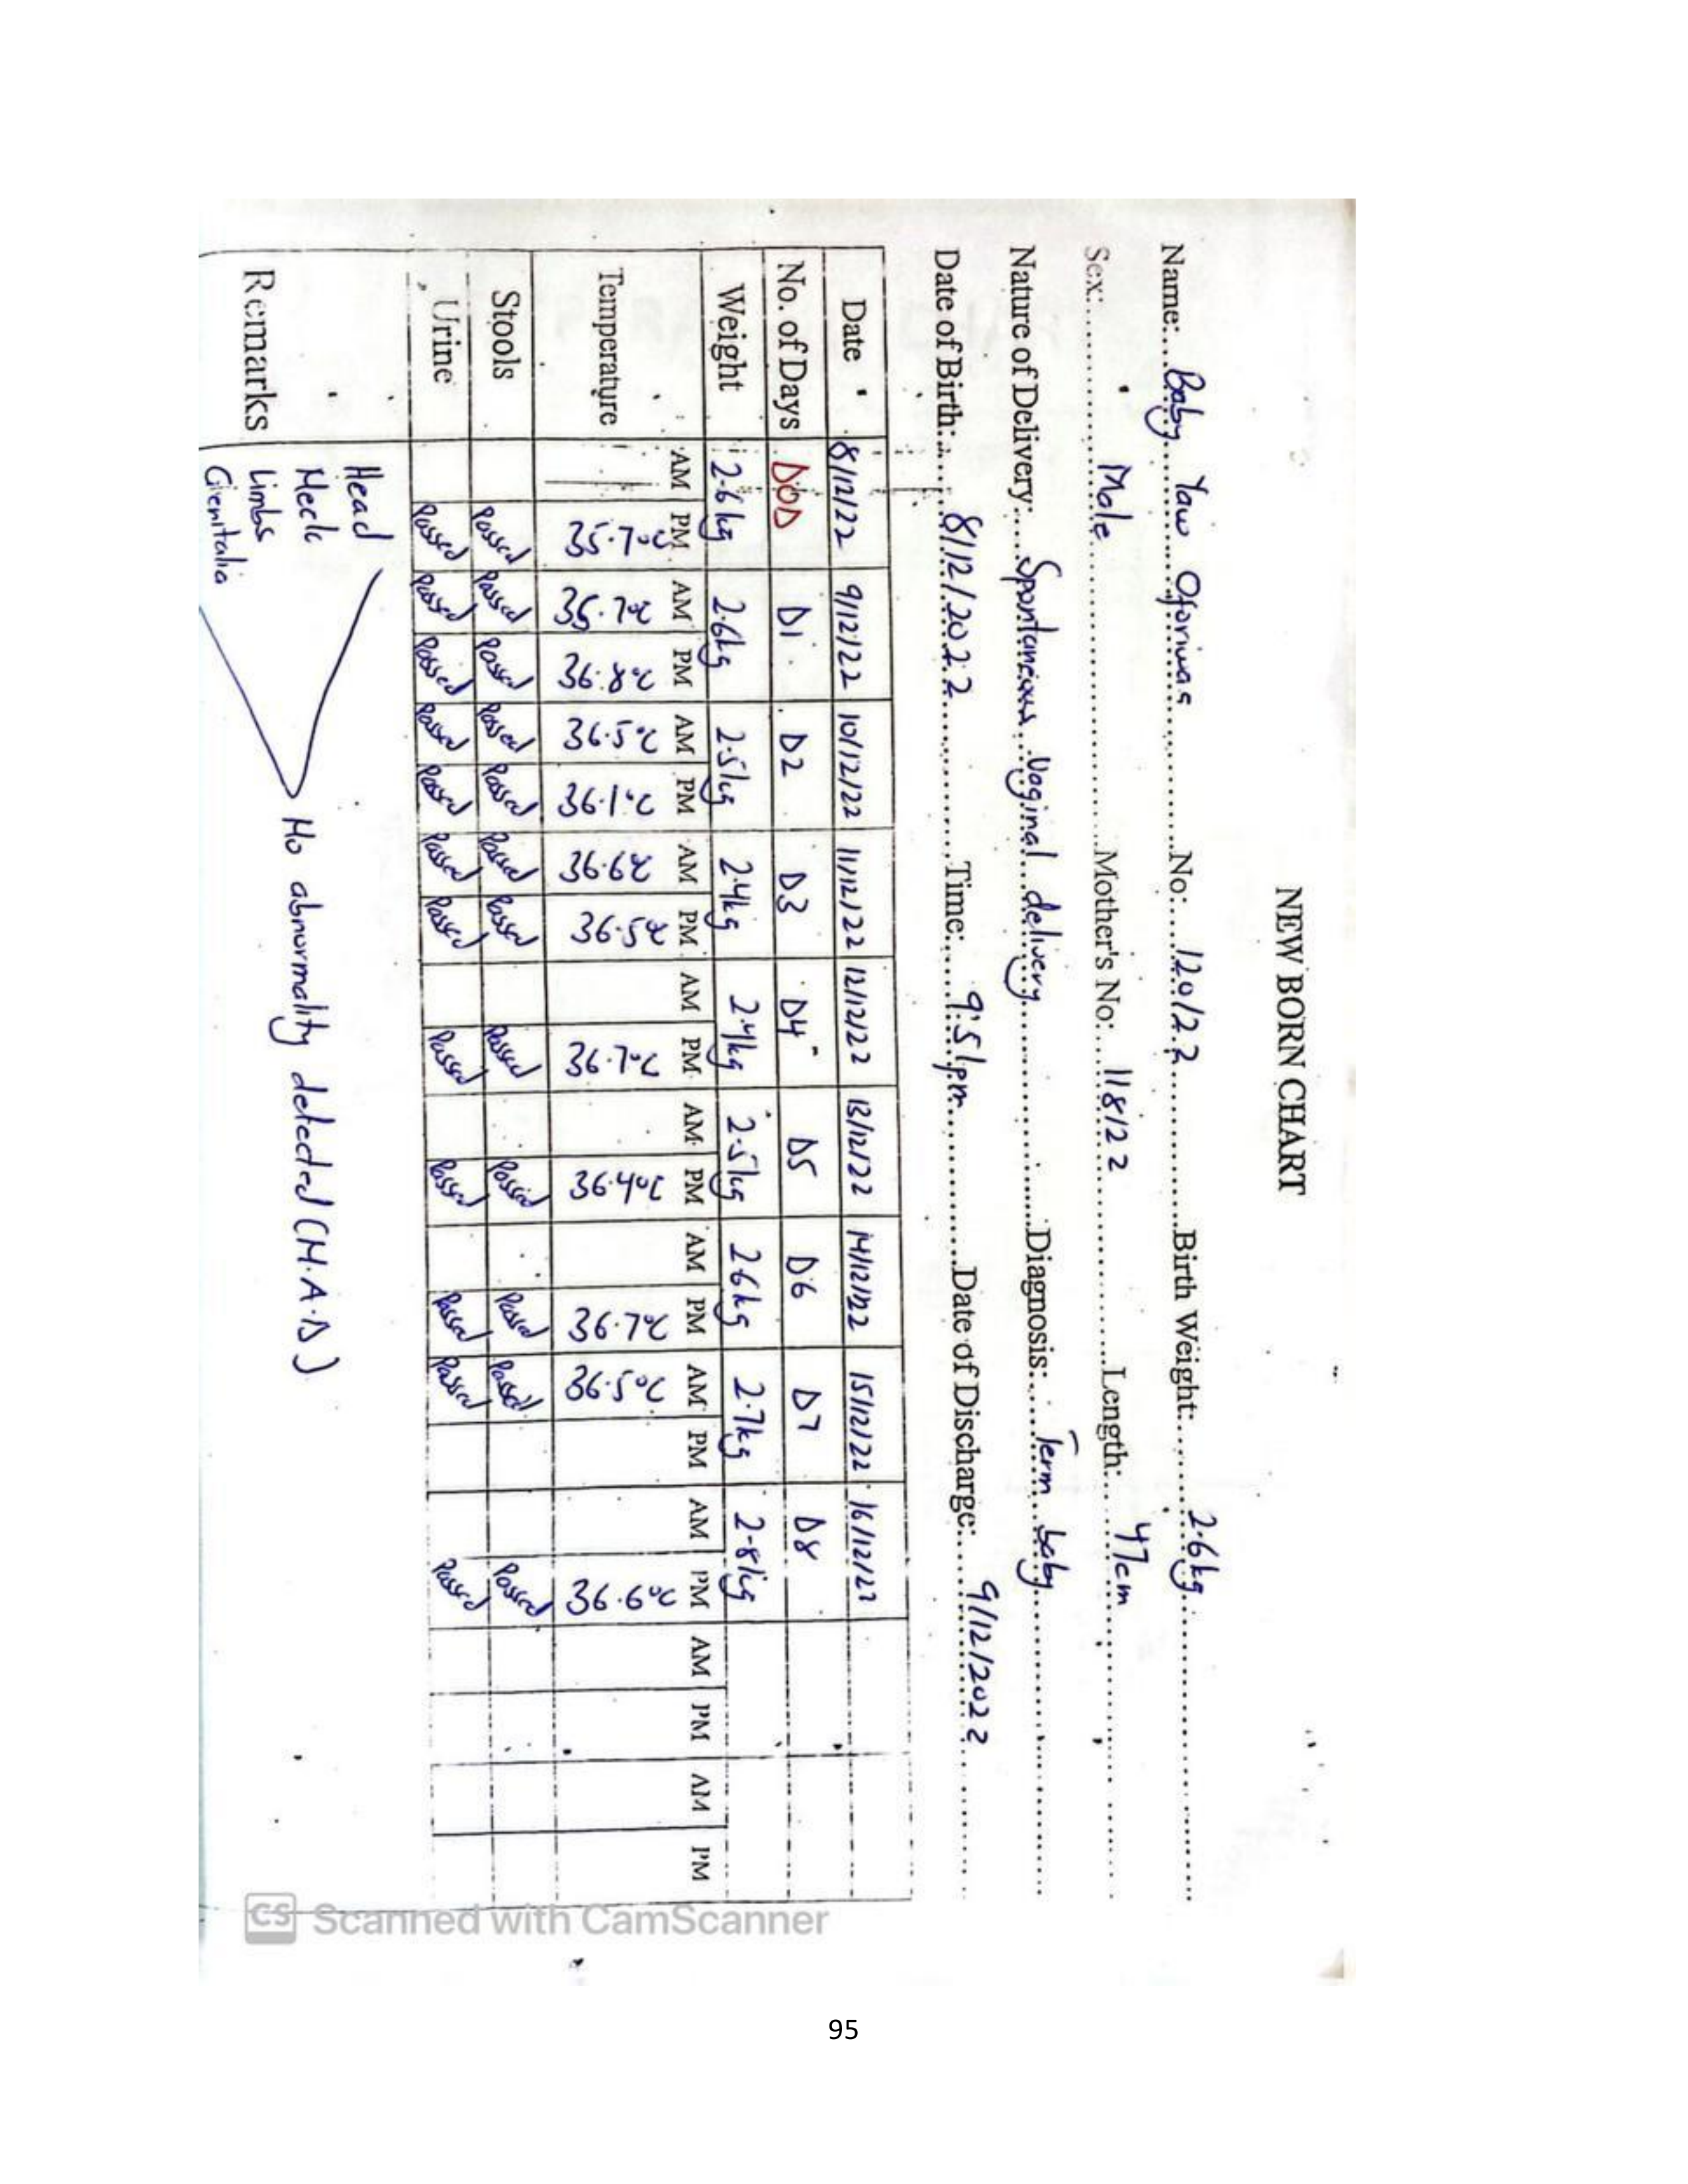 NEW BORN CHART
Name: Baby Yaw Oforiwaa No: 120/22 Birth Weight: 2.6kg
Sex: Male Mother's No: 118/22 Length: 47cm
Nature of Delivery: Spontaneous Vaginal delivery Diagnosis: Term baby
Date of Birth: 8/12/2022 Time: 9:51pm Date of Discharge: 9/12/2022
Date 8/12/22 9/12/22 10/12/22 11/12/22 12/12/22 13/12/22 14/12/22 15/12/22 16/12/22
No. of Days DOD D1 D2 D3 D4 D5 D6 D7 D8
Weight 2.6kg 2.6kg 2.5kg 2.4kg 2.4kg 2.5kg 2.6kg 2.7kg 2.8kg
AM PM AM PM AM PM AM PM AM PM AM PM AM PM AM PM AM PM AM PM AM PM
Temperature 35.7°C 36.8°C 36.5°C 36.1°C 36.6°C 36.5°C 36.7°C 36.4°C 36.7°C 36.5°C 36.6°C
Stools Passed Passed Passed Passed Passed Passed Passed Passed Passed Passed Passed Passed
Urine Passed Passed Passed Passed Passed Passed Passed Passed Passed Passed Passed Passed
Remarks
Head
Neck
Limbs
Genitalia
No abnormality detected (N.A.D)
CS Scanned with CamScanner
95